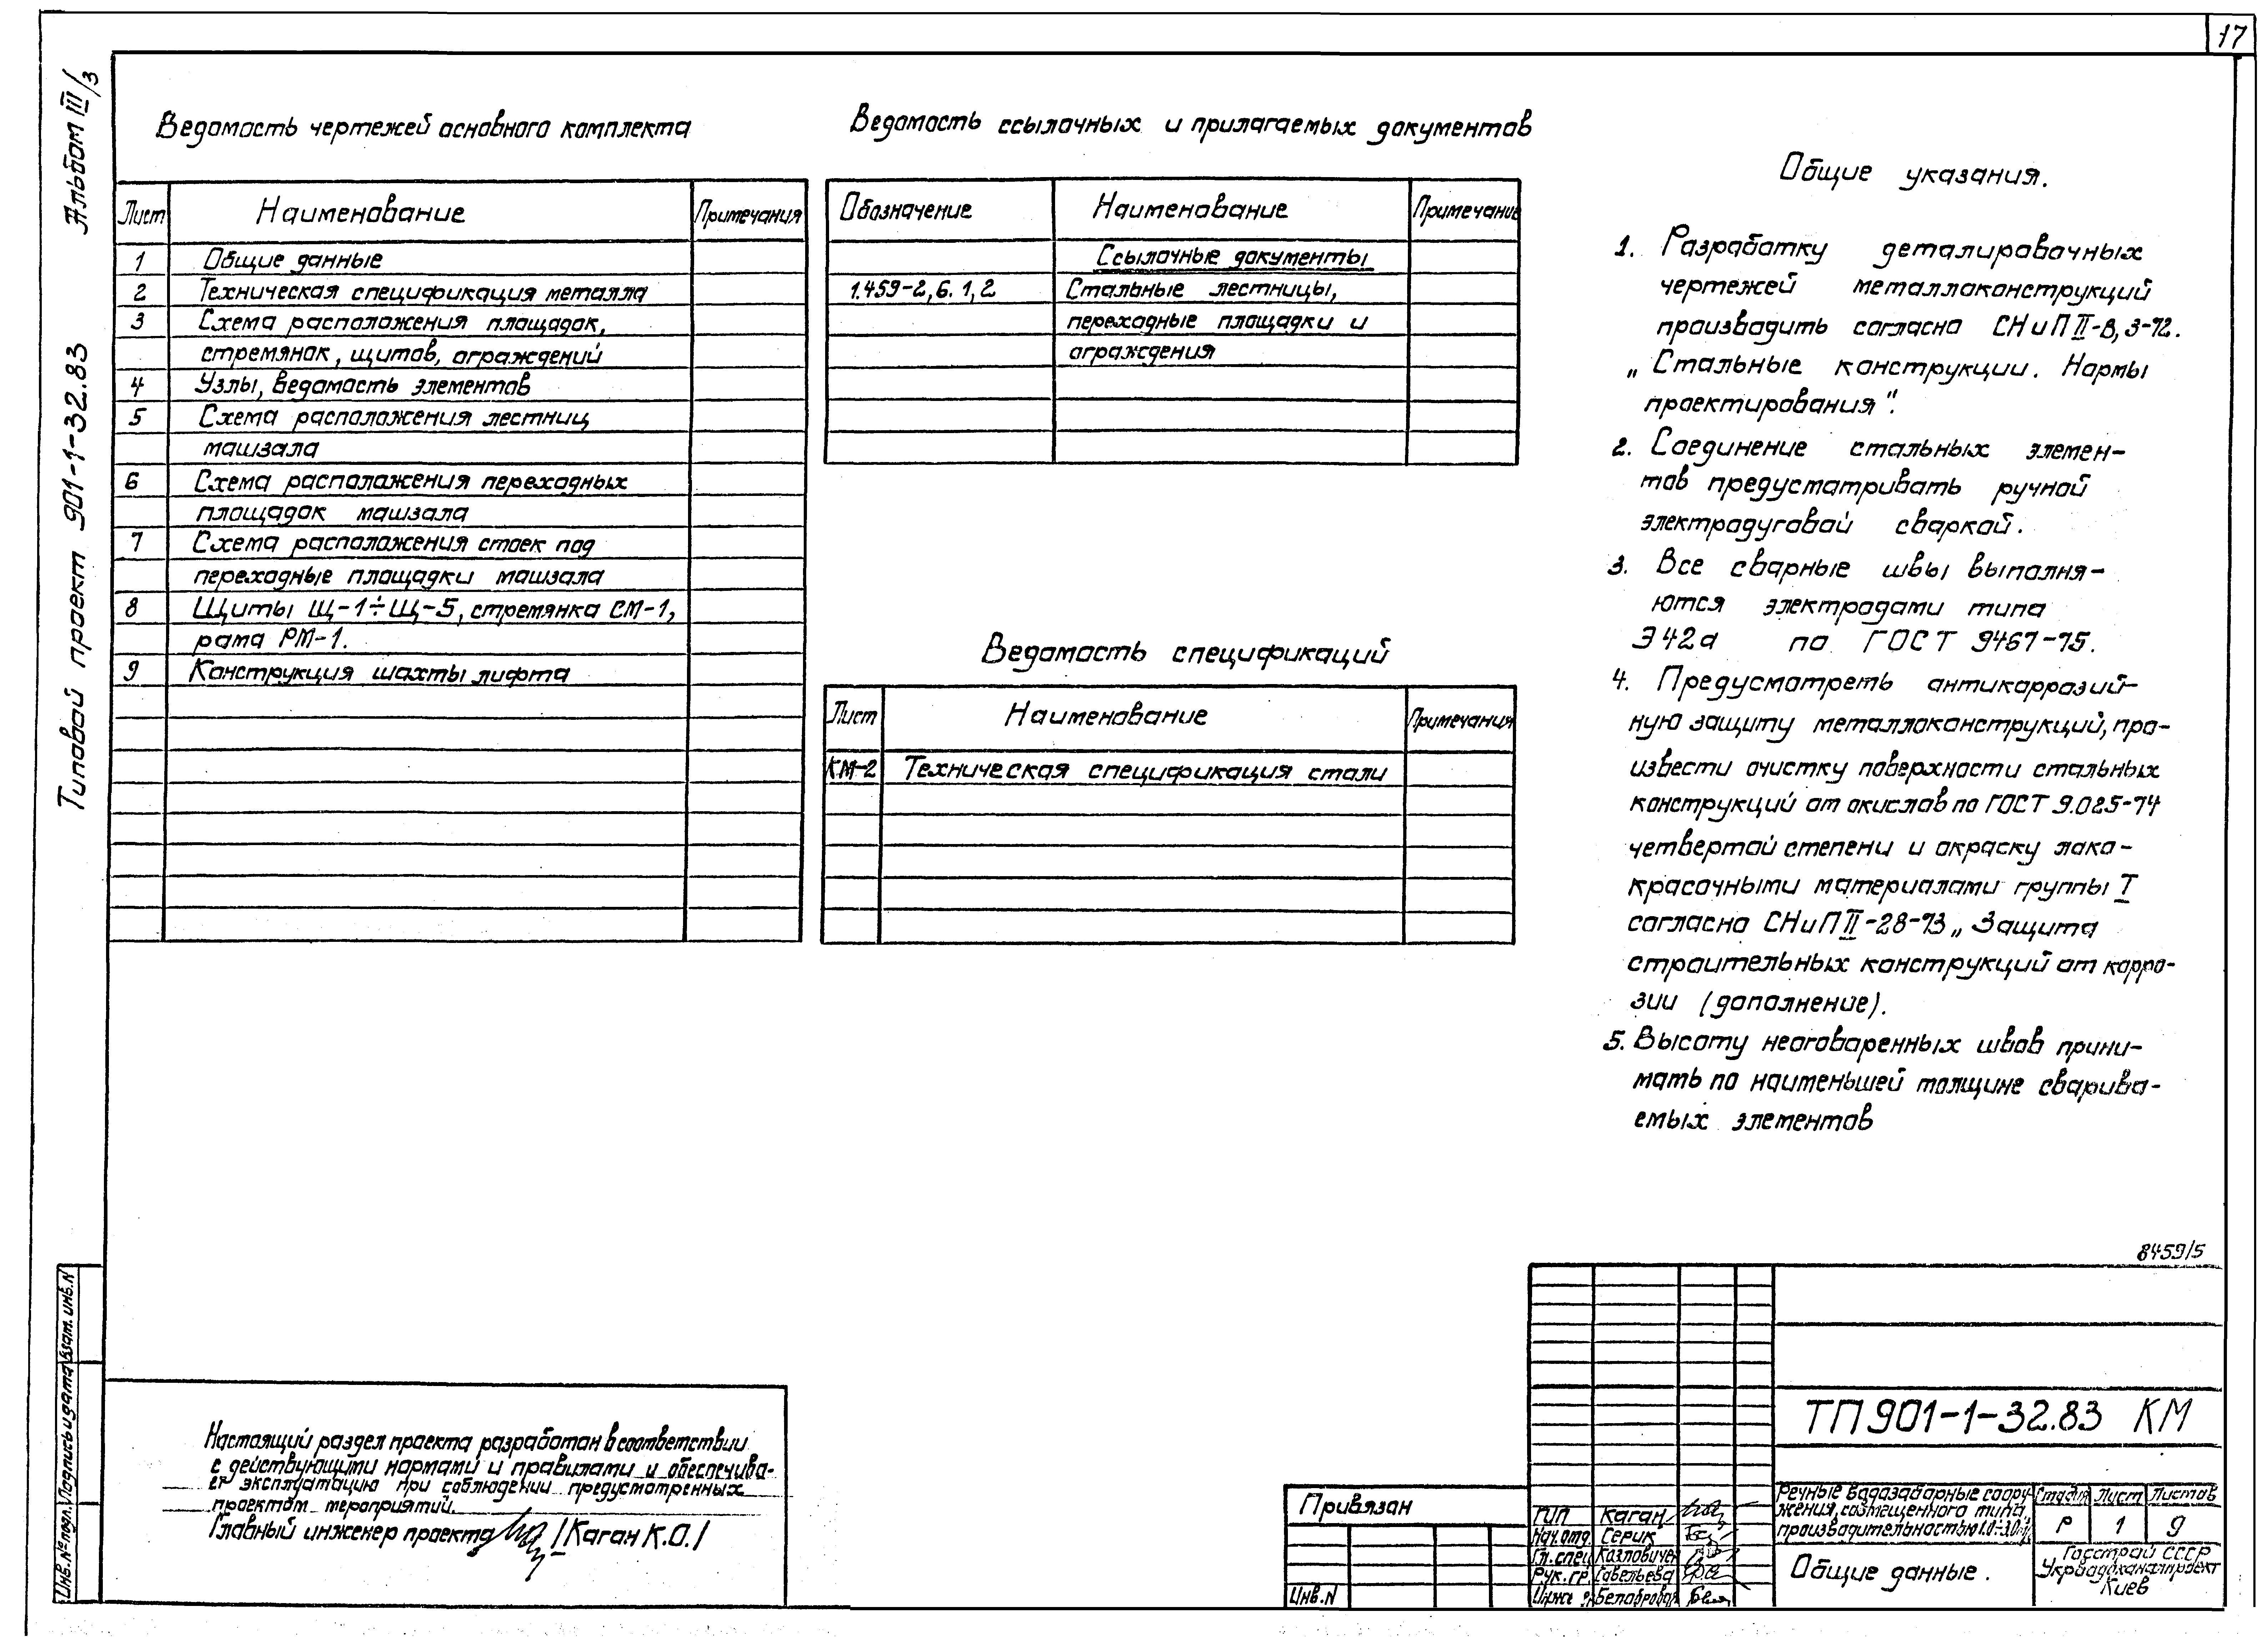 17
Альбом III/3
Типовой проект 901-1-32.83
Ведомость чертежей основного комплекта
Лист Наименование Примечания
1 Общие данные
2 Техническая спецификация металла
3 Схема расположения площадок,
стремянок, щитов, ограждений
4 Узлы, ведомость элементов
5 Схема расположения лестниц
машзала
6 Схема расположения переходных
площадок машзала
7 Схема расположения стоек под
переходные площадки машзала
8 Щиты Щ-1÷Щ-5, стремянка СМ-1,
рама РМ-1.
9 Конструкция шахты лифта
Ведомость ссылочных и прилагаемых документов
Обозначение Наименование Примечание
Ссылочные документы
1.459-2, б. 1, 2 Стальные лестницы,
переходные площадки и
ограждения
Ведомость спецификаций
Лист Наименование Примечания
КМ-2 Техническая спецификация стали
Общие указания.
1. Разработку деталировочных
чертежей металлоконструкций
производить согласно СНиП II-В,3-72.
„Стальные конструкции. Нормы
проектирования".
2. Соединение стальных элемен-
тов предусматривать ручной
электродуговой сваркой.
3. Все сварные швы выполня-
ются электродами типа
Э42а по ГОСТ 9467-75.
4. Предусмотреть антикоррозий-
ную защиту металлоконструкций, про-
извести очистку поверхности стальных
конструкций от окислов по ГОСТ 9.025-74
четвертой степени и окраску лако-
красочными материалами группы I
согласно СНиП II-28-73 „Защита
строительных конструкций от корро-
зии (дополнение).
5. Высоту неоговоренных швов прини-
мать по наименьшей толщине сварива-
емых элементов
8459/5
Настоящий раздел проекта разработан в соответствии
с действующими нормами и правилами и обеспечива-
ет эксплуатацию при соблюдении предусмотренных
проектом мероприятий.
Главный инженер проекта /Каган К.О./
Инв.№ подл. Подпись и дата Взам. инв.N
Привязан
Инв.N
ГИП Каган
Нач.отд. Серик
Гл.спец Козловичен
Рук.гр. Савельева
Белобровая
ТП 901-1-32.83 КМ
Речные водозаборные соору-
жения, совмещенного типа,
производительностью 1.0÷3.0
Стадия Лист Листов
Р 1 9
Общие данные.
Госстрой СССР
Укрводоканалпроект
Киев